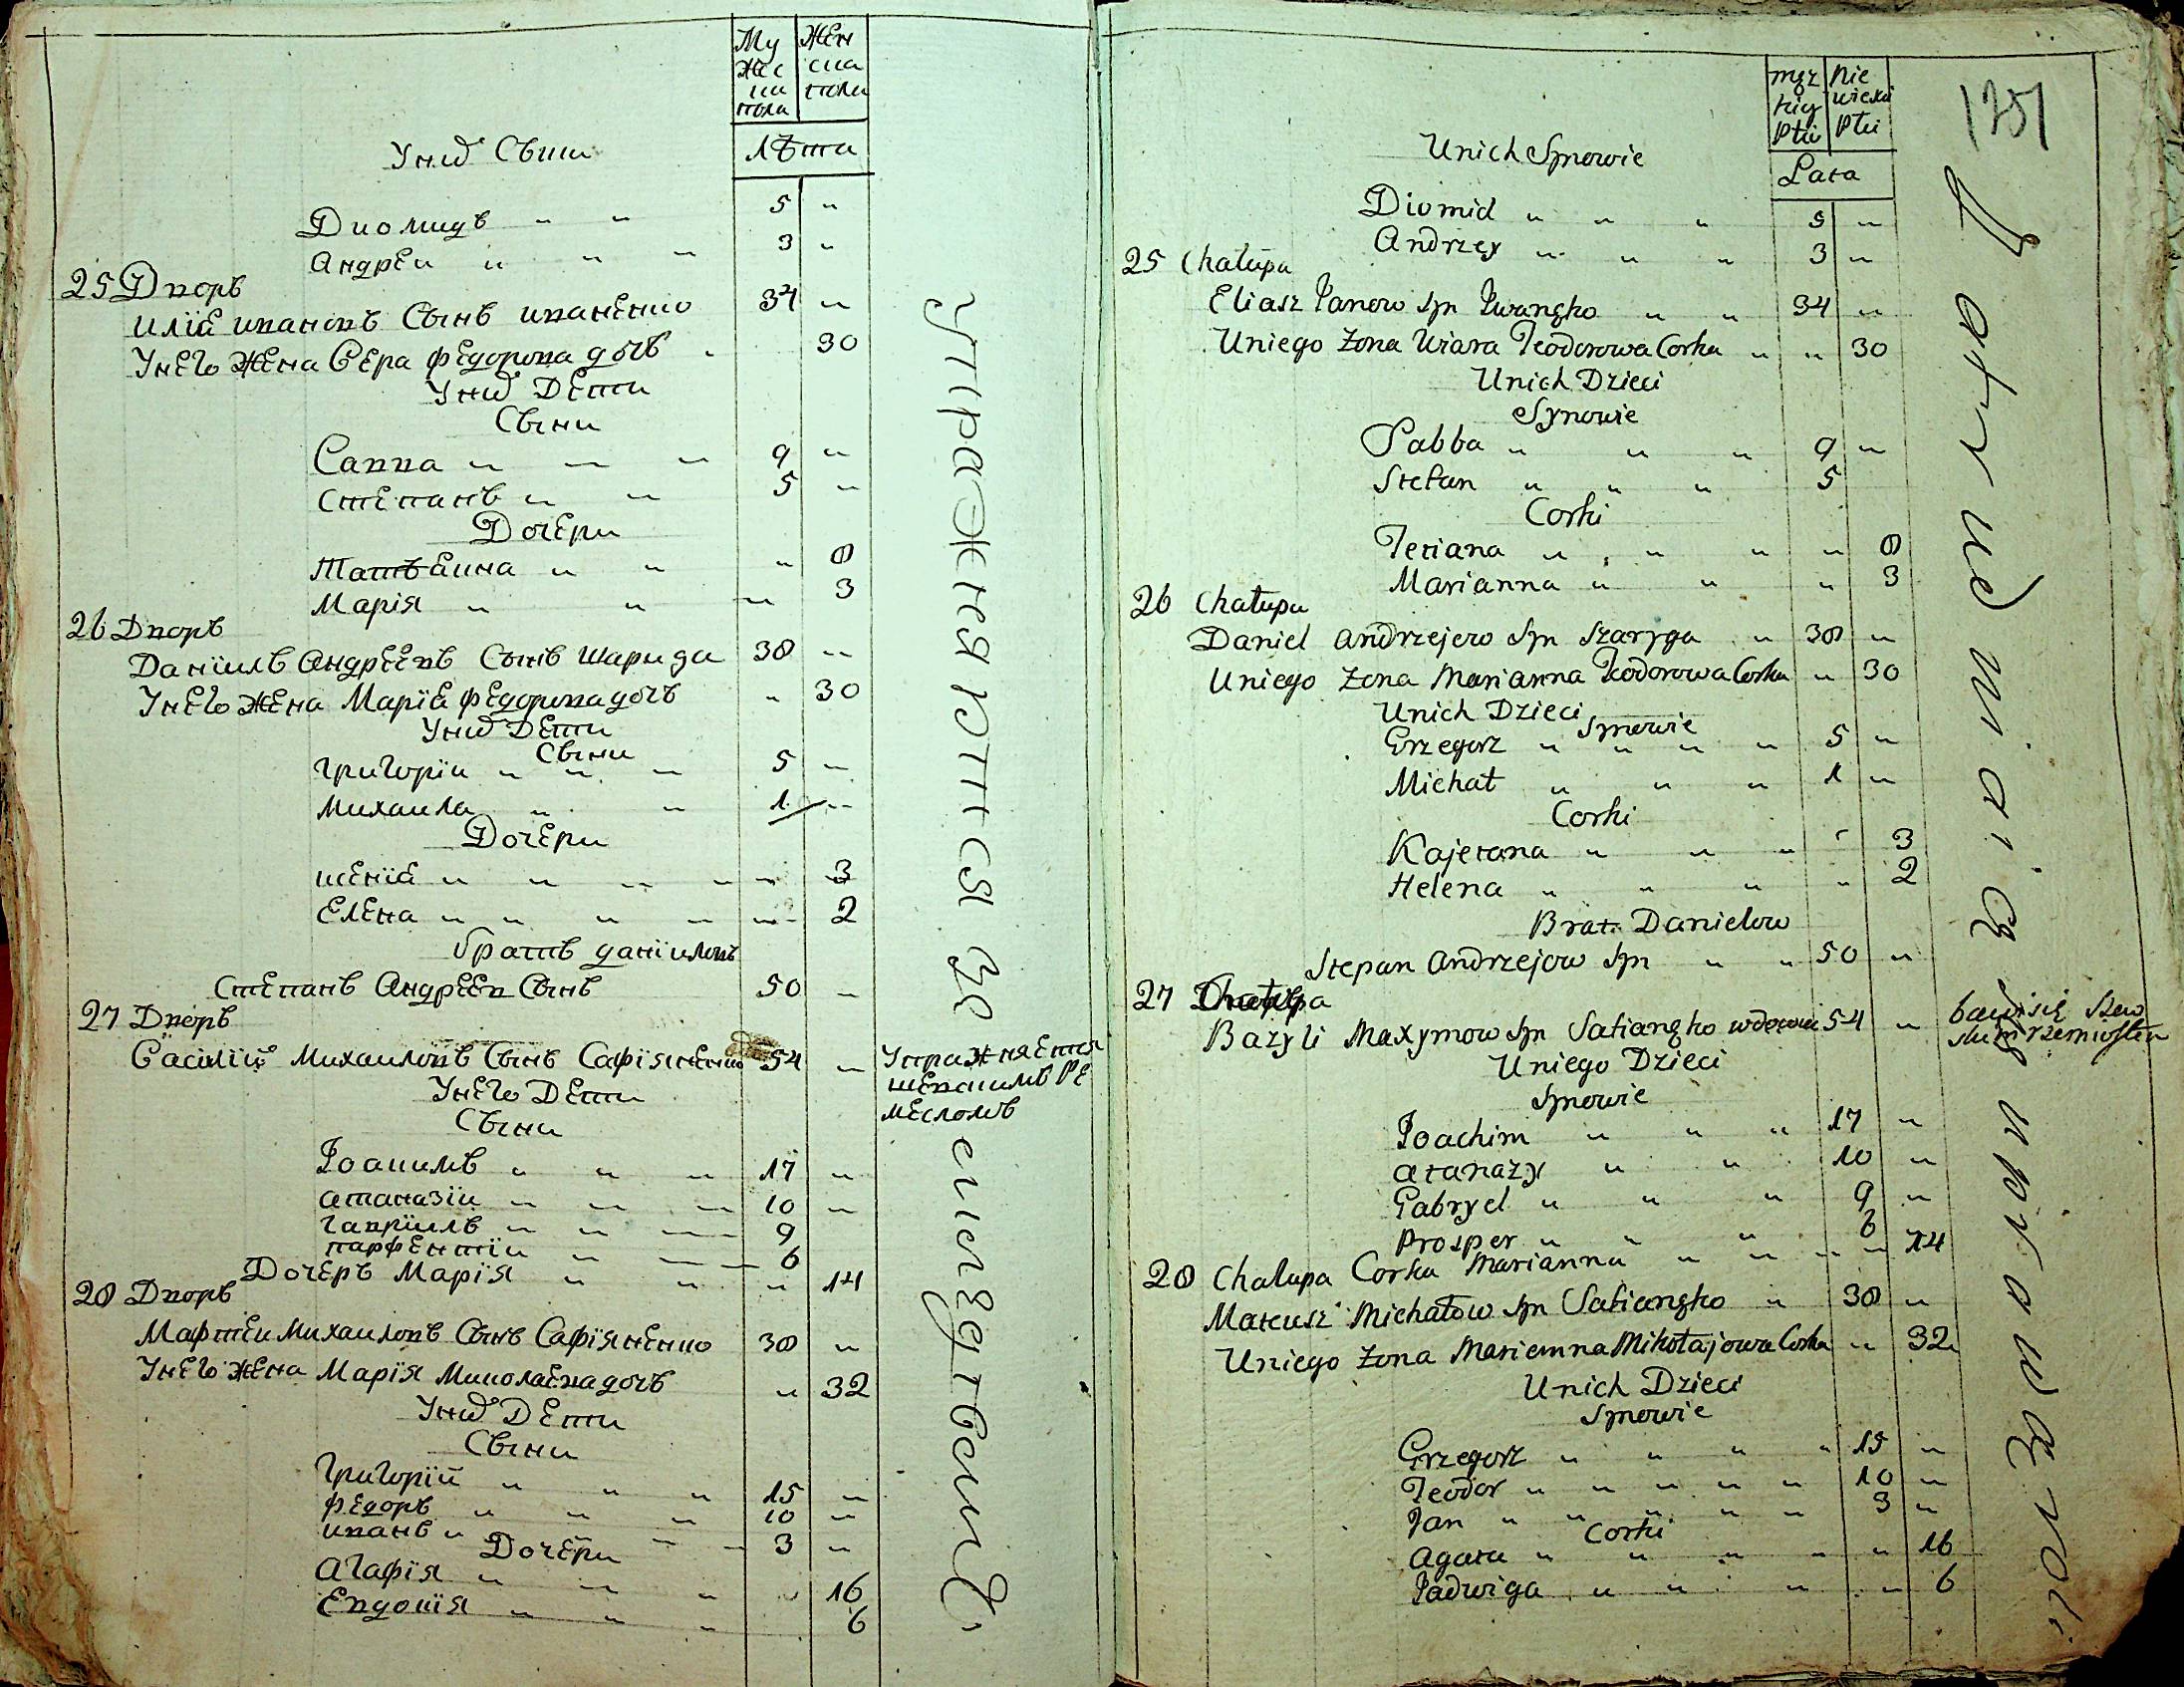 Му жес ка пола
Жен ска поли
Лѣта
Унихъ Сыни
Диомидъ " " 5 "
Андрей " " " 3 "
25 Дворъ
Илїа Ивановъ Сынъ Иваненко 34 "
Унего жена Вера Федорова дочъ " 30
Унихъ Дети
Сыни
Савва " " " 9 "
Степанъ " " 5 "
Дочери
Татъеина " " " 8
Марія " " " 3
26 Дворъ
Данїилъ Андрѣевъ Сынъ Шарида 38 "
Унего жена Марїа Федорова дочъ " 30
Унихъ Дети
Сыни
Григорїи " " " 5 "
Михаила " " 1 "
Дочери
Ксенїа " " " " " 3
Елена " " " " " 2
братъ данїиловъ
Степанъ Андреев Сынъ 50 "
27 Дворъ
Василїй Михаиловъ Сынъ Сафїяненко 54 "
Упражняется
шевскимъ ре
месломъ
Унего Дети
Сыни
Іоакимъ " " " 17 "
Атаназїи " " " 10 "
Гаврїилъ " " " 9
парфентїи " " " 6
Дочеръ Марїя " " " 14
28 Дворъ
Мафтеи Михаиловъ Сынъ Сафїяненко 38 "
Унего жена Марїя Миколаева дочъ " 32
Унихъ Дети
Сыни
Григорїй " " " 15 "
Федоръ " " " 10 "
иванъ " " " 3 "
Дочери
Агафїя " " " " 16
Евдокїя " " " 6
упражняются
męz kiy płci
nie wiesci płci
Lata
131
Unich Synowie
Diomid " " " 5 "
Andrzey " " " 3 "
25 Chałupa
Eliasz Janow Syn Iwangko " " 34 "
Uniego Zona Wiara Teodorowa Corka " " 30
Unich Dzieci
Synowie
Sabba " " " 9 "
Stefan " " " 5
Corki
Teciana " " " " 8
Marianna " " " 3
26 Chałupa
Daniel Andrzejew Syn Szaryga " 38 "
Uniego Zona Marianna Teodorowa Corka " 30
Unich Dzieci
Synowie
Grzegorz " " " " 5 "
Michał " " " 1 "
Corki
Kajetana " " " " 3
Helena " " " " 2
Brat Danielow
Stepan Andrzejow Syn " " 50 "
27 Chałupa
Bazyli Maxymow Syn Safiangko wdowiec 54 "
bawi się szew
skim rzemiosłem
Uniego Dzieci
Synowie
Joachim " " " 17 "
Atanazy " " 10 "
Gabryel " " " 9 "
Prosper " " " 6
Corka Marianna " " " " 14
28 Chałupa
Mateusz Michałow Syn Safiangko " 38 "
Uniego Zona Marianna Mikołajowa Corka " 32
Unich Dzieci
Synowie
Grzegorz " " " " 15 "
Teodor " " " " " 10 "
Jan " " " " " 3 "
Corki
Agata " " " " " 16
Jadwiga " " " " 6